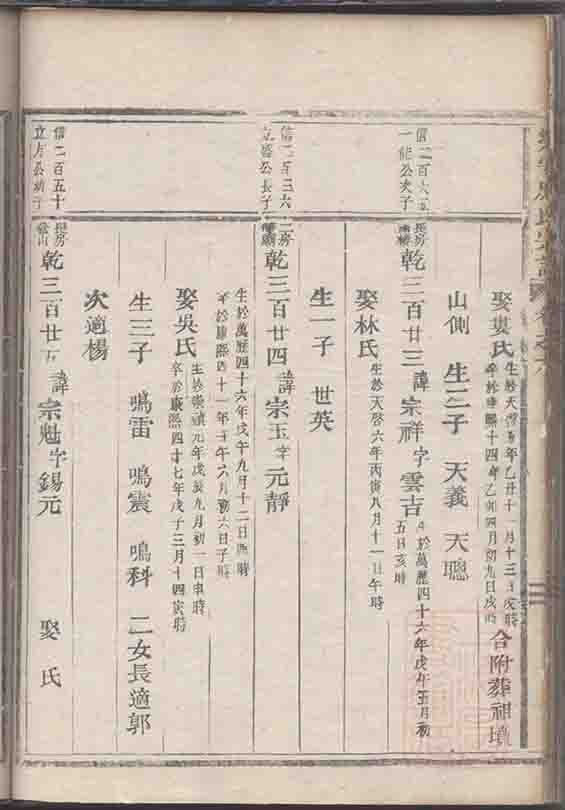 娶婁氏 生於天啓五年乙丑十一月十三日戌時 卒於康熙十四年乙卯四月初九日戌時 合附葬祖墳
山側 生二子 天義 天聰
信二百六 一能公次子
長房 乾三百廿三 諱宗祥 字雲吉 生於萬歷四十六年戊午五月初五日亥時
娶林氏 生於天啓六年丙寅八月十一日午時
生一子 世英
信二百三六 立 公長子
二房 乾三百廿四 諱宗玉 字元靜
生於萬歷四十六年戊午九月十二日酉時 卒於康熙四十一年壬午六月初六日子時
娶吳氏 生於崇禎元年戊辰九月初一日申時 卒於康熙四十七年戊子三月十四寅時
生三子 鳴雷 鳴震 鳴科 二女長適郭
次適楊
信二百五十 立方公幼子
長房 乾三百廿五 諱宗魁 字錫元 娶 氏